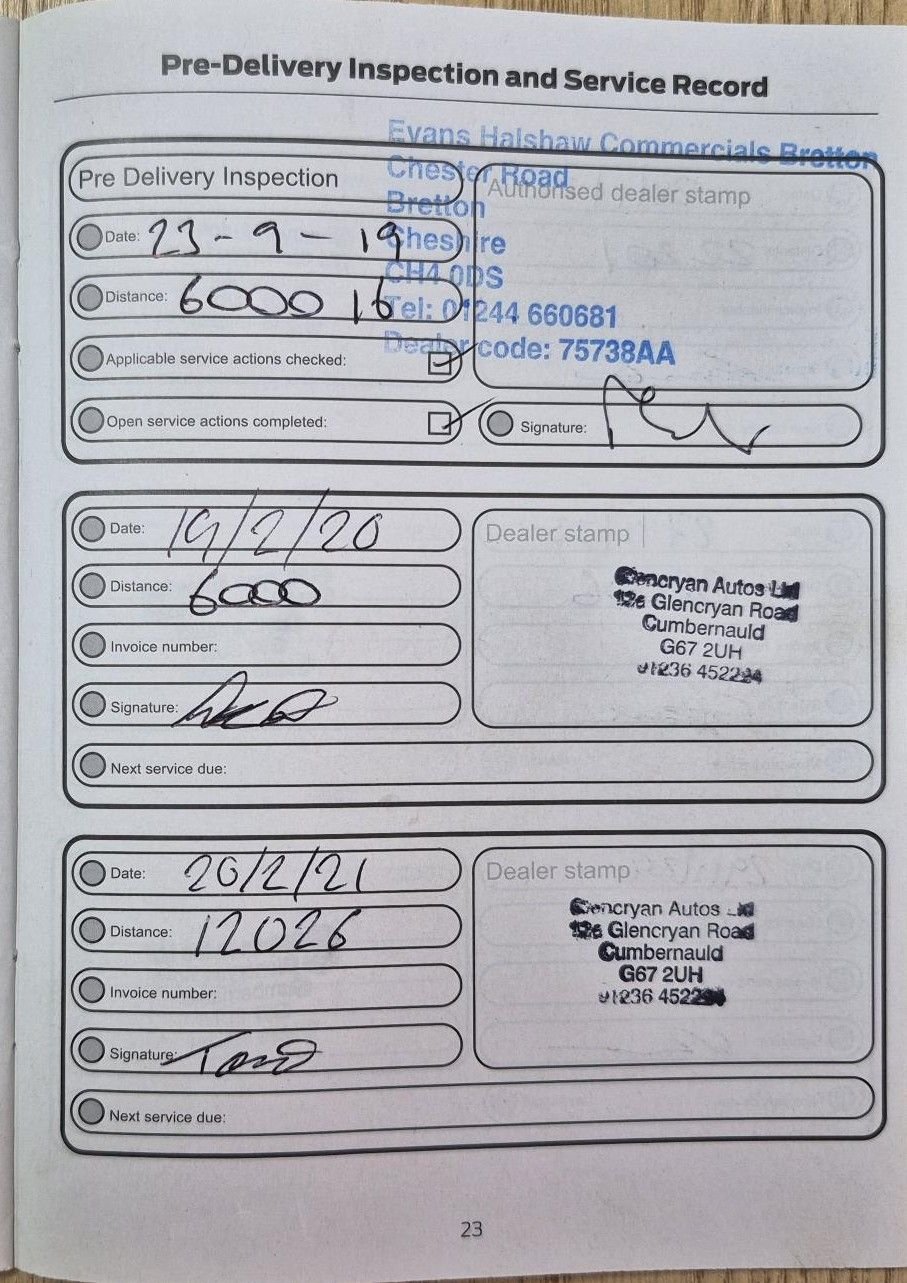 Pre-Delivery Inspection and Service Record
Evans Halshaw Commercials Bretton
Chester Road
Bretton
Cheshire
CH4 0DS
Tel: 01244 660681
Dealer code: 75738AA
Pre Delivery Inspection
Authorised dealer stamp
Date: 23-9-19
Distance: 6000 16
Applicable service actions checked:
Open service actions completed:
Signature:
Date: 19/2/20
Dealer stamp
Distance: 6000
Invoice number:
Signature:
Next service due:
Glencryan Autos Ltd
126 Glencryan Road
Cumbernauld
G67 2UH
01236 4522
Date: 20/2/21
Dealer stamp
Distance: 12026
Invoice number:
Signature:
Next service due:
Glencryan Autos Ltd
126 Glencryan Road
Cumbernauld
G67 2UH
01236 4522
23